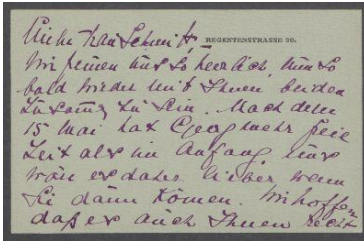 Liebe Frau Schmidt,
REGENTENSTRASSE 20.
Wir freuen uns so herzlich, nun so
bald wieder mit Ihnen beiden
zusammen zu sein. Nach dem
15 Mai hat Georg mehr freie
Zeit als im Anfang, uns
wäre es daher lieber wenn
Sie dann kömen. Wir hoffen
daß es auch Ihnen recht